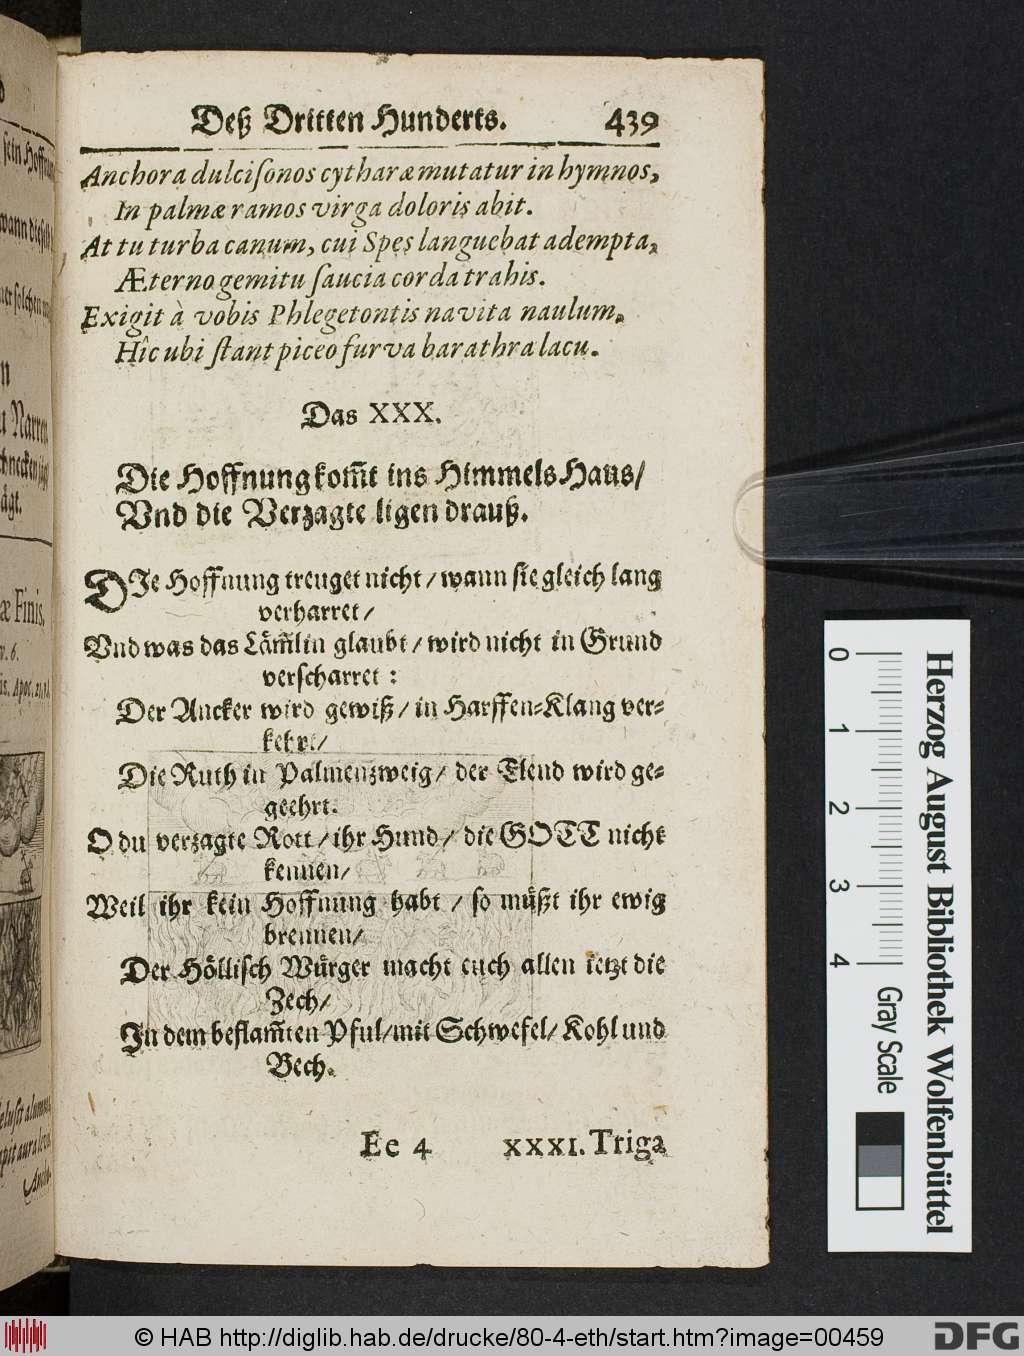 Deß Dritten Hunderts. 439
Anchora dulciſonos cytharæ mutatur in hymnos,
In palmæ ramos virga doloris abit.
At tu turba canum, cui Spes languebat adempta,
Æterno gemitu ſaucia corda trahis.
Exigit à vobis Phlegetontis navita naulum,
Hîc ubi ſtant piceo furva barathra lacu.
Das XXX.
Die Hoffnung kom̃t ins Himmels Haus/
Vnd die Verzagte ligen drauß.
DIe Hoffnung treuget nicht/ wann ſie gleich lang
verharret/
Vnd was das Läm̃lin glaubt/ wird nicht in Grund
verſcharret:
Der Ancker wird gewiß/ in Harffen-Klang ver-
kehrt/
Die Ruth in Palmenzweig/ der Elend wird ge-
geehrt.
O du verzagte Rott/ ihr Hund/ die GOTT nicht
kennen/
Weil ihr kein Hoffnung habt/ ſo müßt ihr ewig
brennen/
Der Hölliſch Würger macht euch allen ietzt die
Zech/
In dem beflam̃ten Pful/ mit Schwefel/ Kohl und
Bech.
Ee 4 XXXI. Triga
ſein Hoffnung
v. 6.
æ Finis.
Apoc. 21, 8.
0 1 2 3 4
Herzog August Bibliothek Wolfenbüttel
Gray Scale
© HAB http://diglib.hab.de/drucke/80-4-eth/start.htm?image=00459
DFG